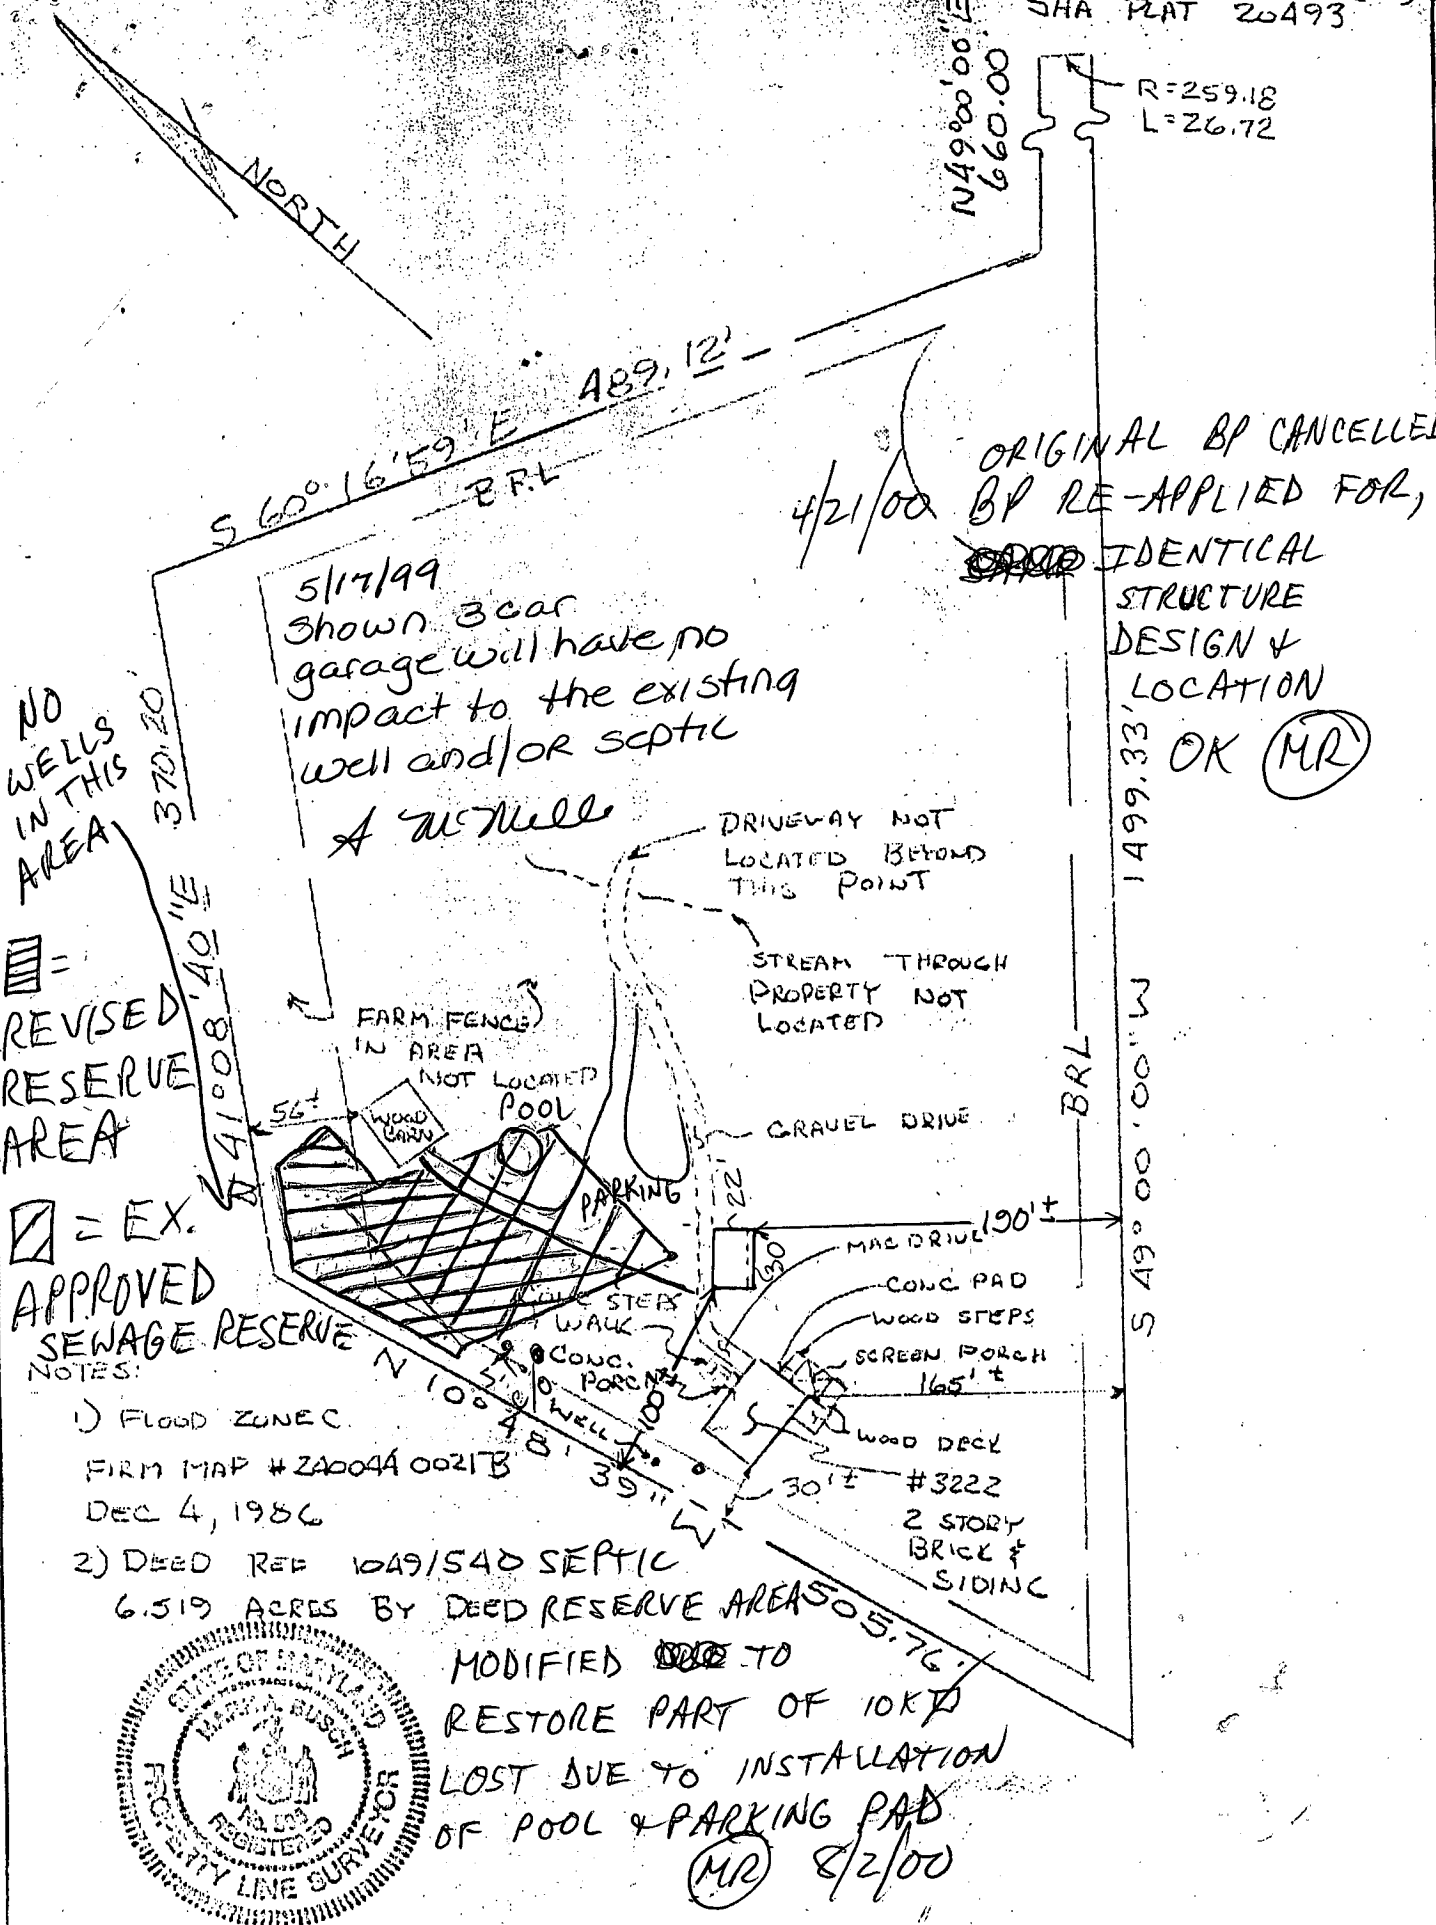 SHA PLAT 20493
N49°00'00"E
660.00'
R=259.18
L=26.72
NORTH
S 60° 16' 59" E 489.12'
B.R.L
ORIGINAL BP CANCELLED
4/21/00 BP RE-APPLIED FOR,
IDENTICAL
STRUCTURE
DESIGN &
LOCATION
OK MR
5/17/99
Shown 3 car
garage will have no
impact to the existing
well and/or septic
NO
WELLS
IN THIS
AREA
N 41°08'40"E 370.20'
DRIVEWAY NOT
LOCATED BEYOND
THIS POINT
STREAM THROUGH
PROPERTY NOT
LOCATED
S 49° 00' 00" W 1499.33'
BRL
=
REVISED
RESERVE
AREA
FARM FENCE
IN AREA
NOT LOCATED
POOL
56'±
WOOD
BARN
GRAVEL DRIVE
PARKING
22'
30'
190'±
= EX.
APPROVED
SEWAGE RESERVE
MAC DRIVE
CONC PAD
WOOD STEPS
SCREEN PORCH
165'±
CONC STEPS
WALK
CONC.
PORCH
100'
WELL
WOOD DECK
30'±
#3222
2 STORY
BRICK &
SIDING
N 10° 48' 39" W 505.76'
NOTES:
1) FLOOD ZONE C
FIRM MAP #240044 0021B
DEC 4, 1986
2) DEED REF 1049/540
6.519 ACRES BY DEED
SEPTIC
RESERVE AREA
MODIFIED TO
RESTORE PART OF 10K
LOST DUE TO INSTALLATION
OF POOL & PARKING PAD
MR 8/2/00
STATE OF MARYLAND
MARK A BUSCH
REGISTERED
PROPERTY LINE SURVEYOR